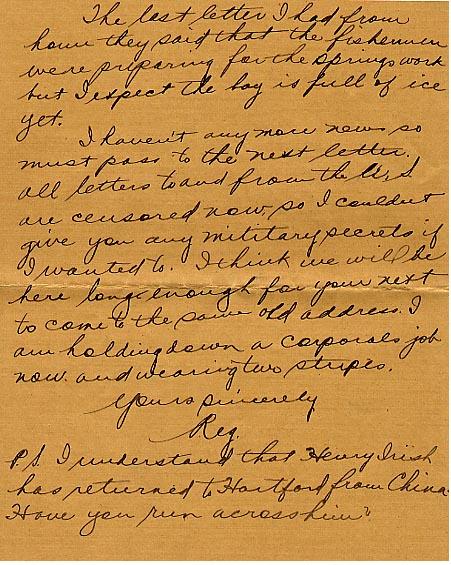 The last letter I had from
home they said that the fishermen
were preparing for the springs work
but I expect the bay is full of ice
yet.
I haven't any more news so
must pass to the next letter.
all letters to and from the U.S
are censored now, so I couldn't
give you any military secrets if
I wanted to. I think we will be
here long enough for your next
to come to the same old address. I
am holding down a corporals job
now. and wearing two stripes.
Yours sincerely
Reg.
P.S. I understand that Henry Irish
has returned to Hartford from China.
Have you run across him?